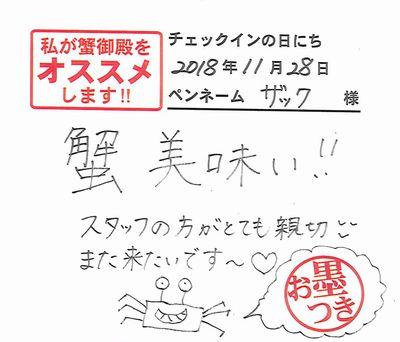 私が蟹御殿を
オススメ
します!!
チェックインの日にち
2018年11月28日
ペンネーム ザック 様
蟹 美味い!!
スタッフの方がとても親切
また来たいです〜♡
お墨つき